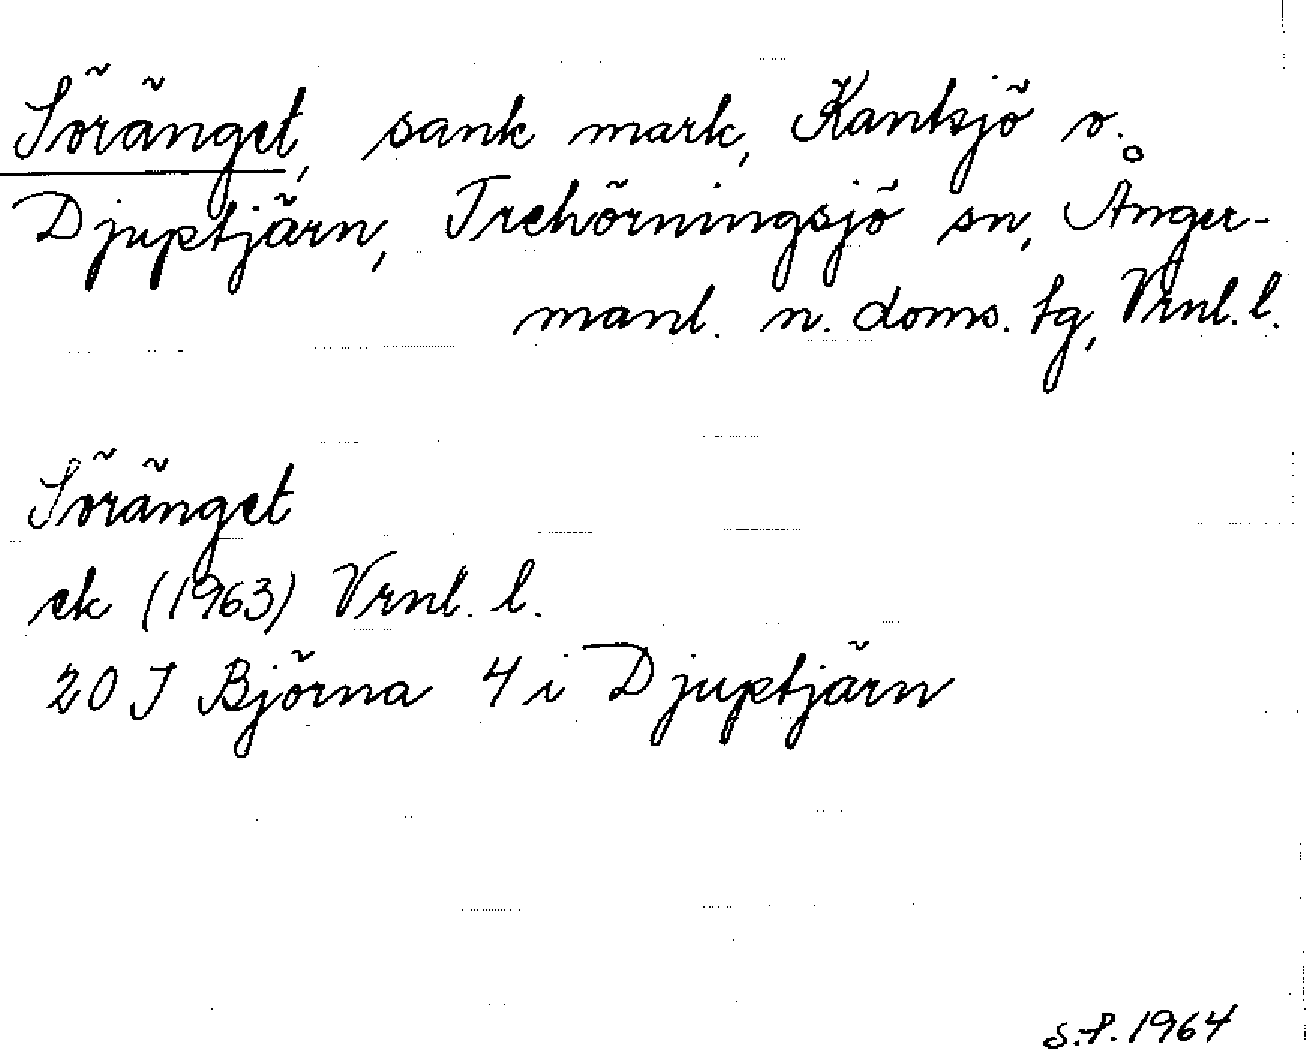 Söränget, sank mark, Kanksjö o.
Djuptjärn, Trehörningsjö sn, Ånger-
manl. n. doms. tg, Vrnl. l.
Söränget
ek (1963) Vrnl. l.
20 I Björna 4 i Djuptjärn
S.P. 1964